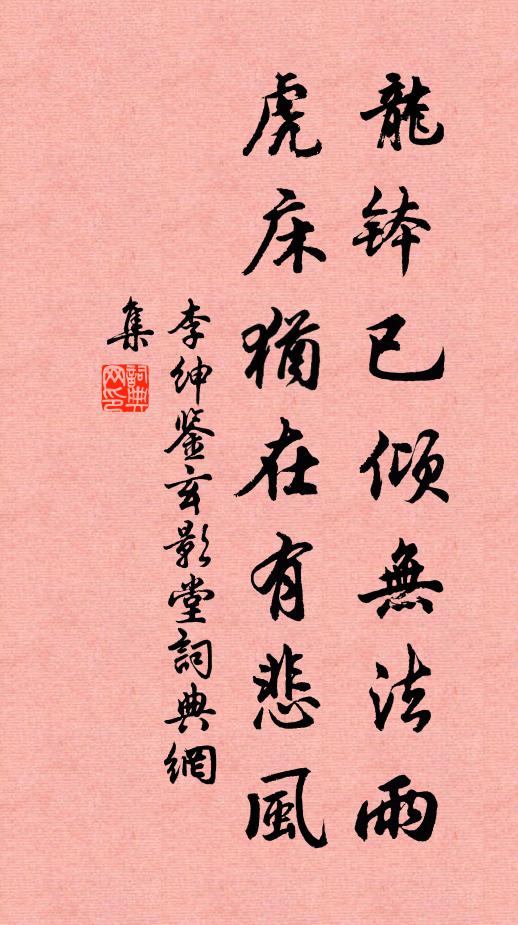 龍鉢已傾無法雨
虎床猶在有悲風
李紳鉴玄影堂詞典網
集
詞典网印